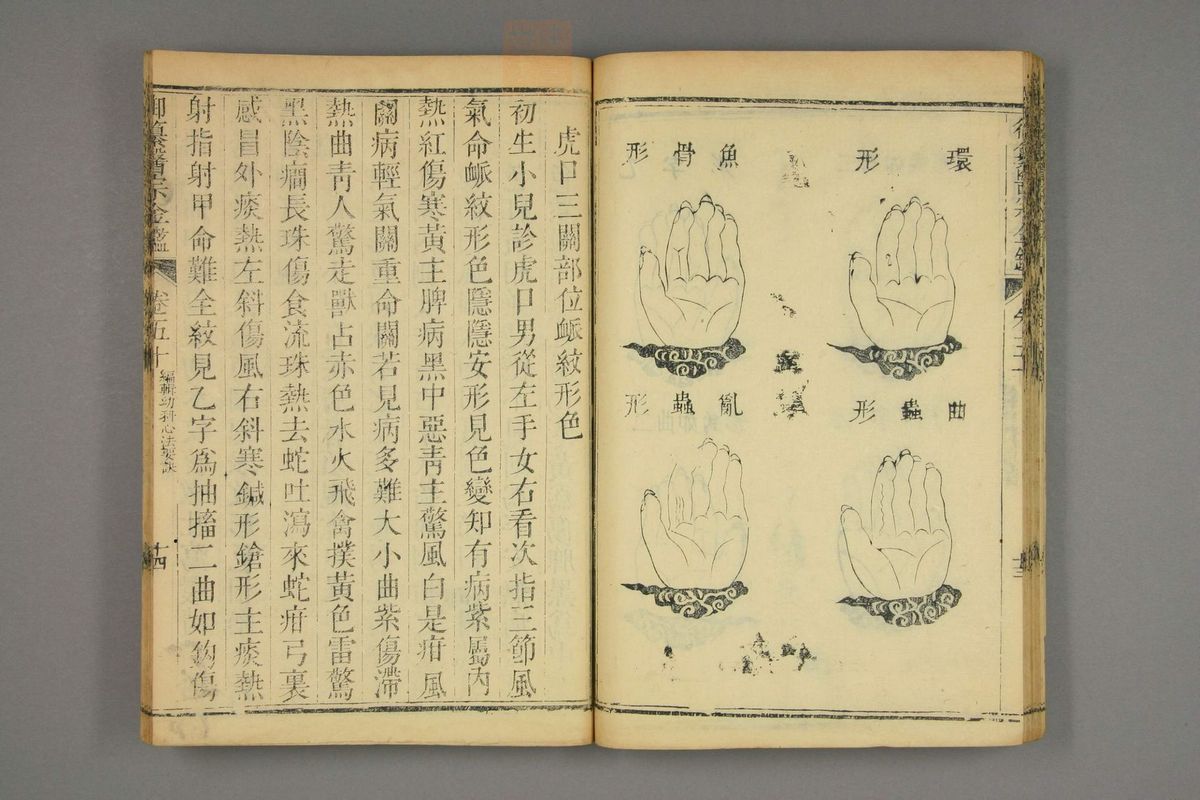 環形
魚骨形
曲蟲形
亂蟲形
虎口三關部位䘑紋形色
初生小兒診虎口男從左手女右看次指三節風
氣命䘑紋形色隱隱安形見色變知有病紫屬內
熱紅傷寒黃主脾病黑中惡青主驚風白是疳風
關病輕氣關重命關若見病多難大小曲紫傷滯
熱曲青人驚走獸占赤色水火飛禽撲黃色雷驚
黑陰癎長珠傷食流珠熱去蛇吐瀉來蛇疳弓裏
感冒外痰熱左斜傷風右斜寒鍼形鎗形主痰熱
射指射甲命難全紋見乙字爲抽搐二曲如鉤傷
御纂醫宗金鑑
卷五十
編輯幼科心法要訣
十四